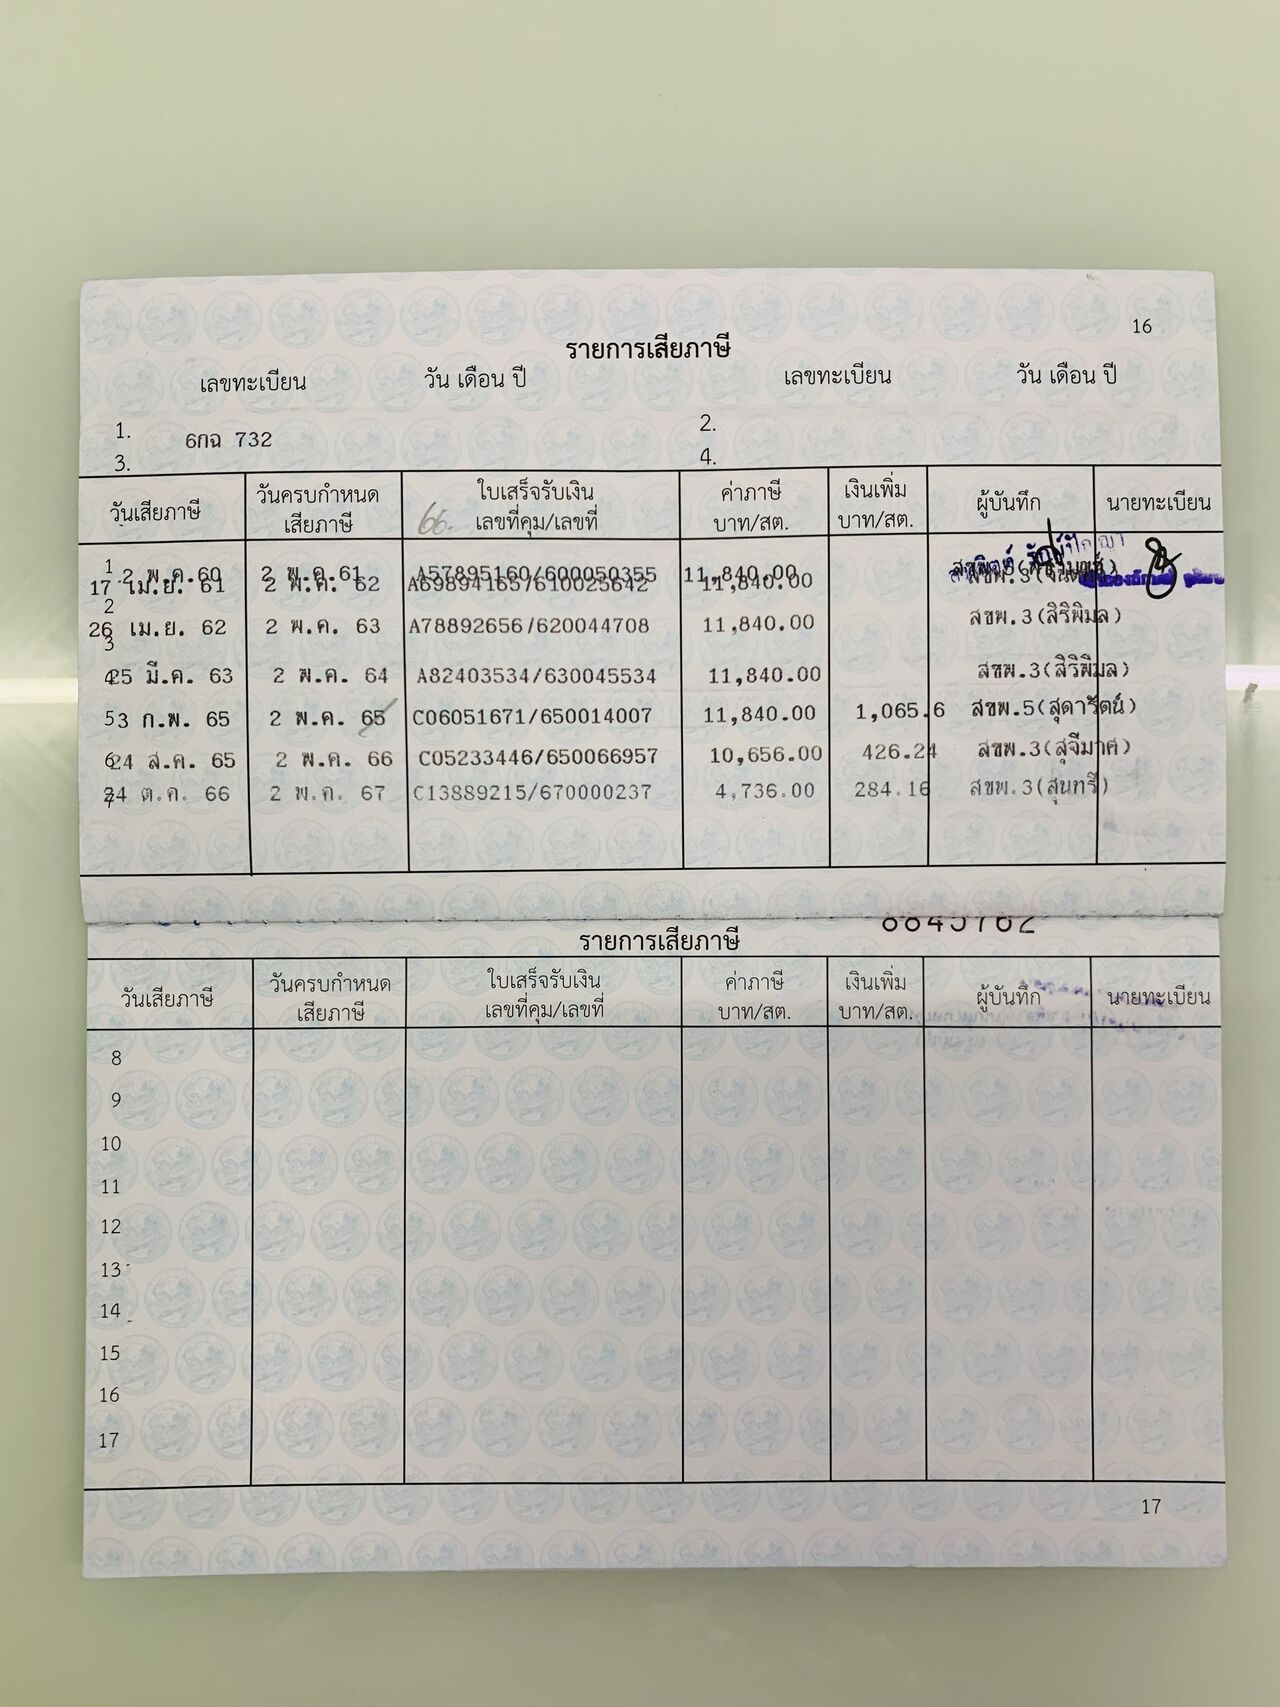 16
รายการเสียภาษี
เลขทะเบียน วัน เดือน ปี เลขทะเบียน วัน เดือน ปี
1. 6กฉ 732 2.
3. 4.
วันเสียภาษี วันครบกำหนดเสียภาษี ใบเสร็จรับเงิน เลขที่คุม/เลขที่ ค่าภาษี บาท/สต. เงินเพิ่ม บาท/สต. ผู้บันทึก นายทะเบียน
66.
1 2 พ.ค.60 2 พ.ค.61 A57895160/600050355 11,840.00
17 เม.ย. 61 2 พ.ค. 62 A69894165/610025642 11,840.00
2
26 เม.ย. 62 2 พ.ค. 63 A78892656/620044708 11,840.00 สขพ.3(สิริพิมล)
3
4 25 มี.ค. 63 2 พ.ค. 64 A82403534/630045534 11,840.00 สขพ.3(สิริพิมล)
5 3 ก.พ. 65 2 พ.ค. 65 C06051671/650014007 11,840.00 1,065.6 สขพ.5(สุดารัตน์)
6 24 ส.ค. 65 2 พ.ค. 66 C05233446/650066957 10,656.00 426.24 สขพ.3(สุจีมาศ)
7 24 ต.ค. 66 2 พ.ค. 67 C13889215/670000237 4,736.00 284.16 สขพ.3(สุนทรี)
8845762
รายการเสียภาษี
วันเสียภาษี วันครบกำหนดเสียภาษี ใบเสร็จรับเงิน เลขที่คุม/เลขที่ ค่าภาษี บาท/สต. เงินเพิ่ม บาท/สต. ผู้บันทึก นายทะเบียน
8
9
10
11
12
13
14
15
16
17
17